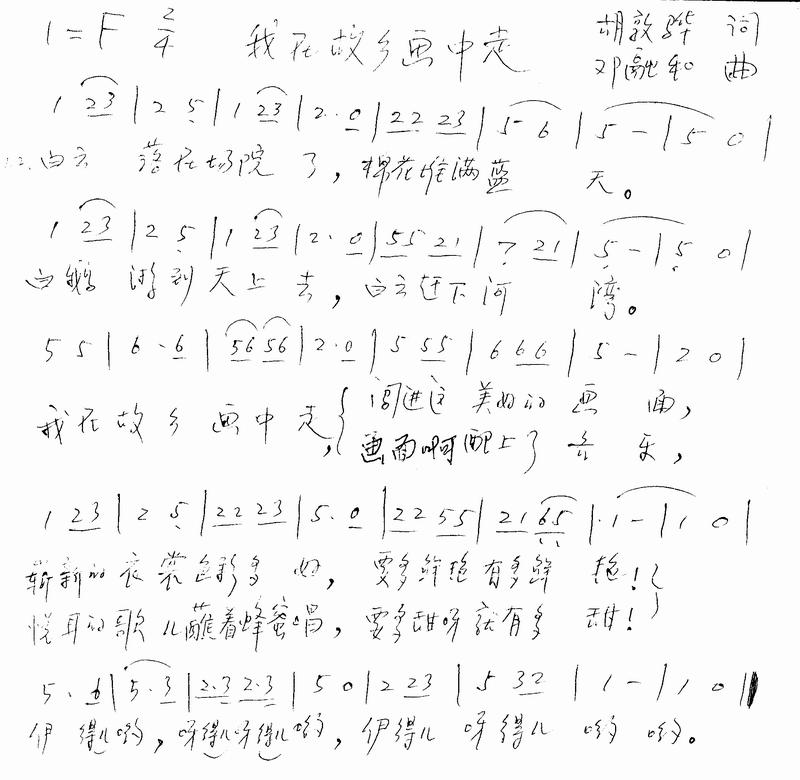 1=F 2/4 我在故乡画中走 胡敦骅 词
邓融和 曲
1 23 | 2 5 | 1 23 | 2· 0 | 22 23 | 5 6 | 5 - | 5 0 |
1.2.白云 落在场院 了，棉花堆满蓝 天。
1 23 | 2 5 | 1 23 | 2· 0 | 55 21 | 7 21 | 5 - | 5 0 |
白鹅 游到天上 去，白云迁下河 湾。
5 5 | 6 · 6 | 56 56 | 2· 0 | 5 55 | 6 66 | 5 - | 2 0 |
我在故乡画中走，{闯进这 美好的 画 面，
画面啊配上了 音 乐，
1 23 | 2 5 | 22 23 | 5· 0 | 22 55 | 21 65 | 1 - | 1 0 |
崭新的衣裳色彩多 好，要多鲜艳有多鲜 艳！}
悦耳的歌儿蘸着蜂蜜唱，要多甜呀就有多 甜！
5 · 6 | 5 · 3 | 2·3 2·3 | 5 0 | 2 23 | 5 32 | 1 - | 1 0 ||
伊 得儿哟，呀得儿呀得儿哟，伊得儿 呀得儿 哟 哟。